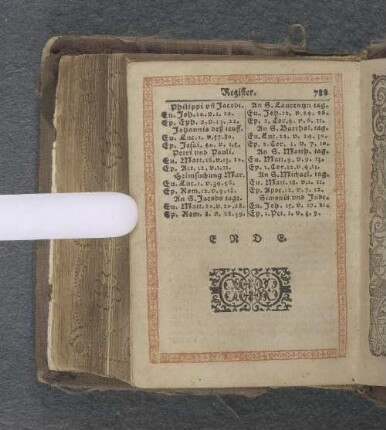 Register. 788
Philippi vñ Jacobi.
Eu. Joh. 14. v. 1. 14.
Ep. Eph. 2. v. 19. 22.
Johannis deß teuff.
Eu. Luc. 1. v. 57. 80.
Ep. Jesai. 40. v. 1.
Petri vnd Pauli.
Eu. Matt. 16. v. 13.
Ep. Act. 12. v. 1. 11.
Heimsuchung Mar.
Eu. Luc. 1. 39. 56.
Ep. Rom. 12. v. 9. 16.
An S. Jacobs tage.
Eu. Matt. 20. v. 20. 28.
Ep. Rom. 8. v. 28. 39.
An S. Laurentij tag.
Eu. Joh. 12. v. 24. 26.
Ep. 2. Cor. 9. v. 6.
An S. Barthol. tag.
Eu. Luc. 22. v. 24. 30.
Ep. 2. Cor. 4. v. 7. 10.
An S. Matth. tag.
Eu. Matt. 9. v. 9. 13.
Ep. 1. Cor. 12. v. 4. 11.
An S. Michael. tag.
Eu. Matt. 18. v. 1. 11.
Ep. Apoc. 12. v. 7. 12.
Simonis vnd Jude.
Eu. Joh. 15. v. 17.
Ep. 1. Pet. 1. v. 3. 9.
E N D E.